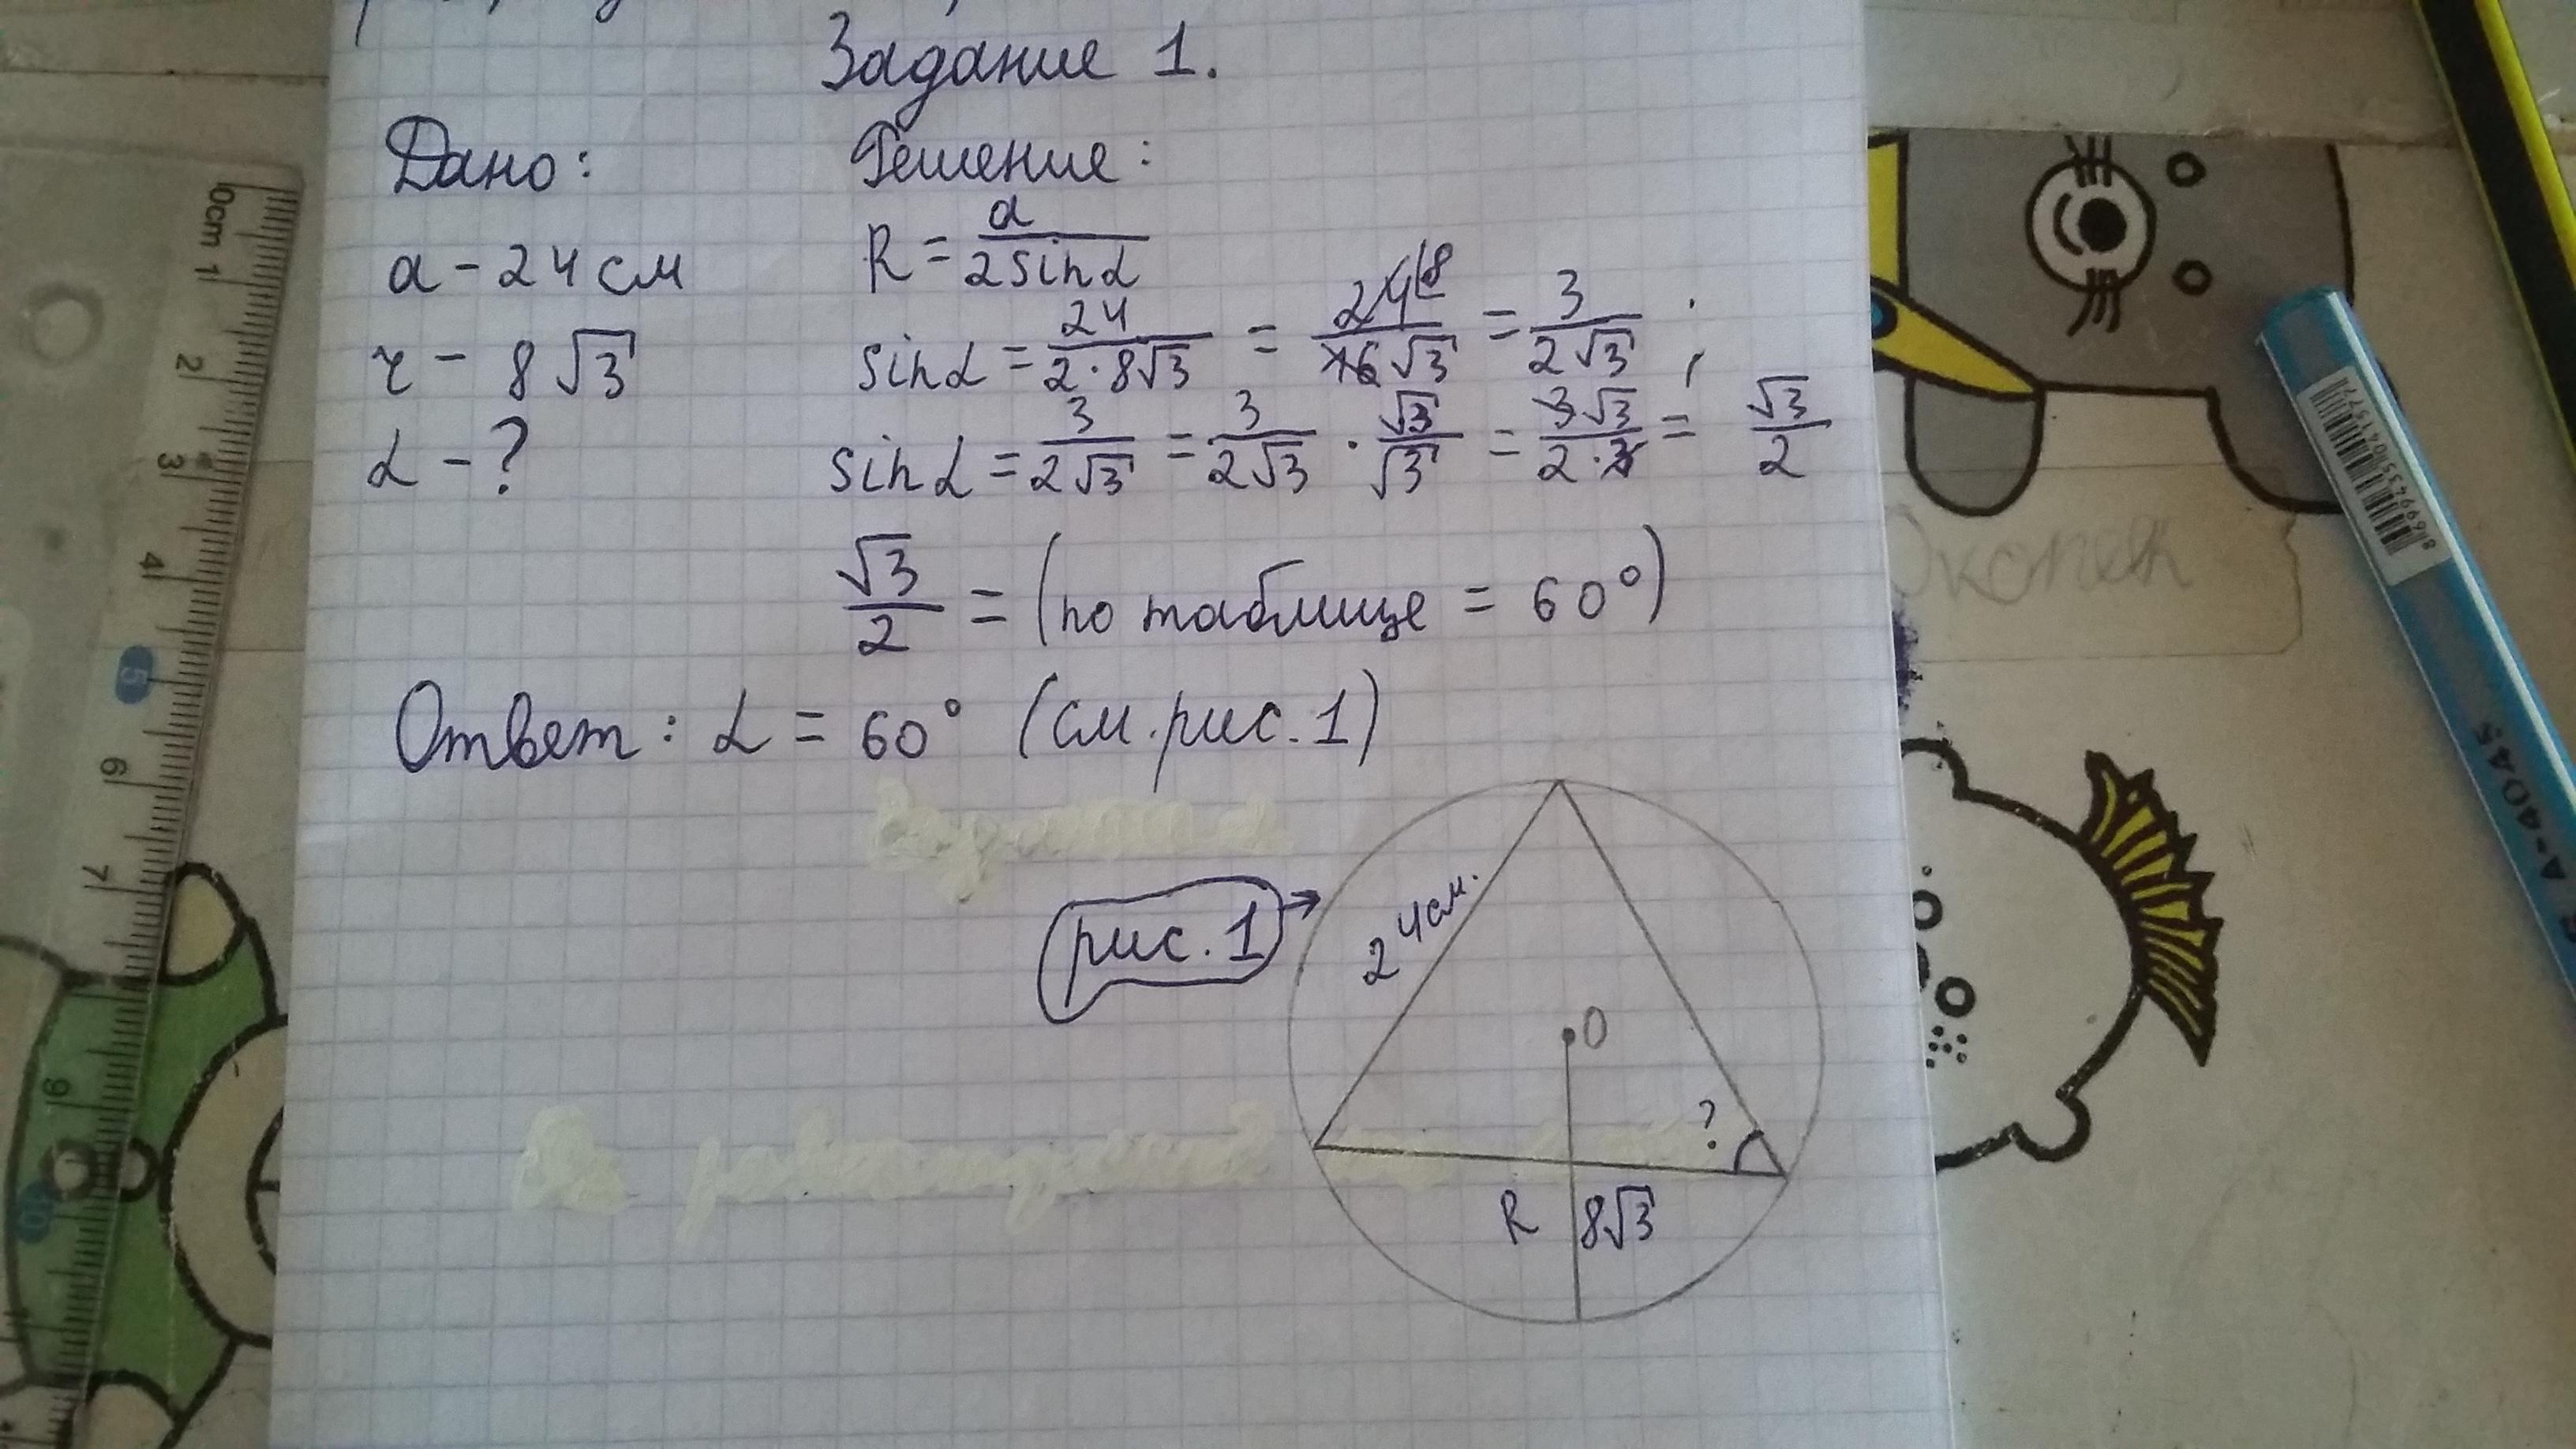 Задание 1.
Дано:
Решение:
a - 24 см
R = a/(2sinα)
r - 8√3
sinα = 24/(2·8√3) = 24|8/(16√3) = 3/(2√3) ;
α - ?
sinα = 3/(2√3) = 3/(2√3) · √3/√3 = 3√3/(2·3) = √3/2
√3/2 = (по таблице = 60°)
Ответ: α = 60° (см. рис. 1)
рис. 1 →
24 см.
O
?
R 8√3
0cm 1 2 3 4 5 6 7 9 10
A-40045